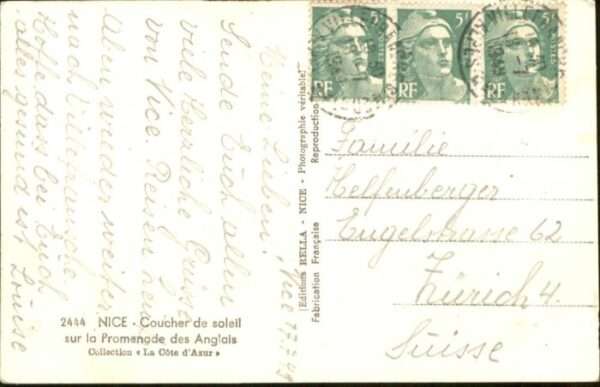 Nice 17.2.48
Meine Lieben!
Sende Euch allen
viele Herzliche Grüsse
von Nice. Reisen heu
Aben wieder weiter
nach
Hoffe dass bei Euch
alles gesund ist. Louise
2444 NICE - Coucher de soleil
sur la Promenade des Anglais
Collection « La Côte d'Azur »
(Editions RELLA - NICE - Photographie véritable)
Fabrication Française
Reproduction
5F 5F 5F
POSTES
RF RF
Familie
Helfenberger
Engelstrasse 62
Zürich 4.
Suisse